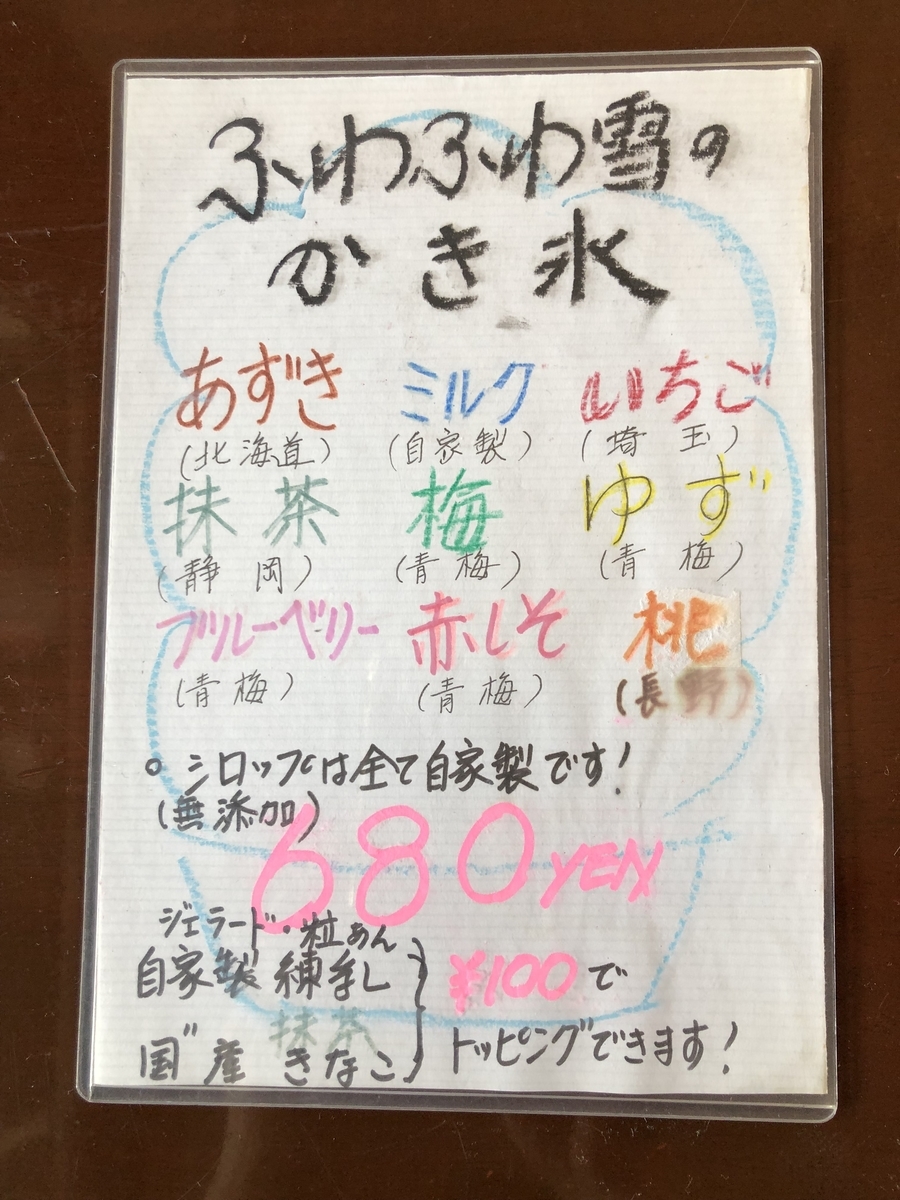 ふわふわ雪の
かき氷
あずき ミルク いちご
(北海道) (自家製) (埼玉)
抹茶 梅 ゆず
(静岡) (青梅) (青梅)
ブルーベリー 赤しそ 桃
(青梅) (青梅) (長野)
○ シロップは全て自家製です!
(無添加)
680YEN
ジェラード・粒あん
自家製練乳 ¥100で
抹茶
国産きなこ トッピングできます!